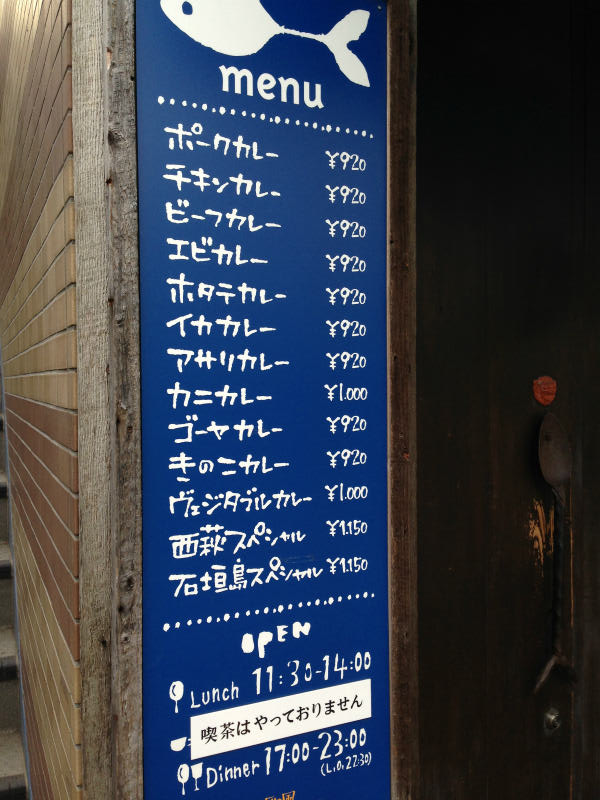 menu
ポークカレー ¥920
チキンカレー ¥920
ビーフカレー ¥920
エビカレー ¥920
ホタテカレー ¥920
イカカレー ¥920
アサリカレー ¥920
カニカレー ¥1.000
ゴーヤカレー ¥920
きのこカレー ¥920
ヴェジタブルカレー ¥1.000
西荻スペシャル ¥1.150
石垣島スペシャル ¥1.150
OPEN
Lunch 11:30-14:00
喫茶はやっておりません
Dinner 17:00-23:00
(L.O.22:30)